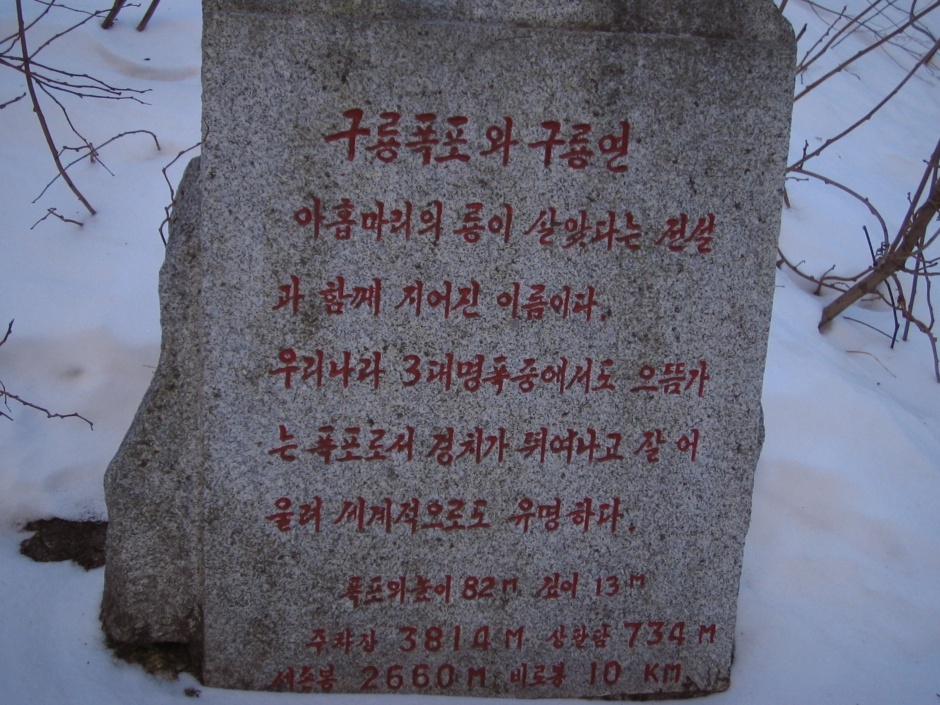 구룡폭포와 구룡연
아홉마리의 룡이 살았다는 전설
과 함께 지어진 이름이다.
우리나라 3대명폭중에서도 으뜸가
는 폭포로서 경치가 뛰여나고 잘 어
울려 세계적으로도 유명하다.
폭포의높이 82M 깊이 13M
주차장 3814M 상팔담 734M
세존봉 2660M 비로봉 10 KM.